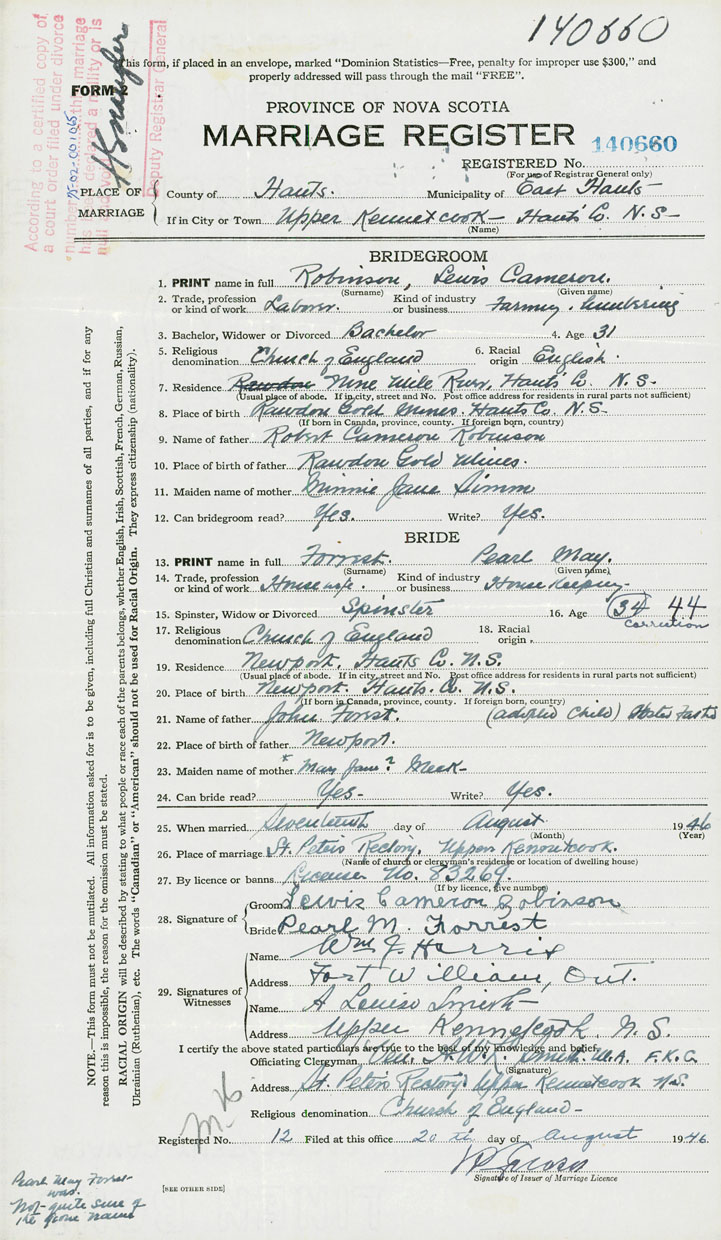 140660
This form, if placed in an envelope, marked “Dominion Statistics—Free, penalty for improper use $300,” and
properly addressed will pass through the mail “FREE”.
FORM 2
According to a certified copy of
a court order filed under divorce
number 75-02-001065 the marriage
has declared a nullity or is
null
Deputy Registrar General
PROVINCE OF NOVA SCOTIA
MARRIAGE REGISTER 140660
REGISTERED No.
(For use of Registrar General only)
PLACE OF MARRIAGE
County of Hants. Municipality of East Hants—
If in City or Town Upper Kennetcook— Hants Co. N.S—
(Name)
BRIDEGROOM
1. PRINT name in full Robinson, Lewis Cameron.
(Surname) (Given name)
2. Trade, profession or kind of work Laborer. Kind of industry or business Farming. Lumbering
3. Bachelor, Widower or Divorced Bachelor 4. Age 31
5. Religious denomination Church of England 6. Racial origin English.
7. Residence Rawdon Nine Mile River, Hants Co. N.S.
(Usual place of abode. If in city, street and No. Post office address for residents in rural parts not sufficient)
8. Place of birth Rawdon Gold Mines. Hants Co. N.S—
(If born in Canada, province, county. If foreign born, country)
9. Name of father Robert Cameron Robinson
10. Place of birth of father Rawdon Gold Mines.
11. Maiden name of mother Minnie Jane Simm
12. Can bridegroom read? Yes. Write? Yes.
BRIDE
13. PRINT name in full Forrest. Pearl May.
(Surname) (Given name)
14. Trade, profession or kind of work Housewife. Kind of industry or business House Keeping—
15. Spinster, Widow or Divorced Spinster 16. Age 34 44
Correction
17. Religious denomination Church of England 18. Racial origin
19. Residence Newport, Hants Co. N.S.
(Usual place of abode. If in city, street and No. Post office address for residents in rural parts not sufficient)
20. Place of birth Newport. Hants. Co. N.S.
(If born in Canada, province, county. If foreign born, country)
21. Name of father John Forrst. (adopted child)
22. Place of birth of father Newport.
23. Maiden name of mother * Mary Jane? Meek—
24. Can bride read? Yes— Write? Yes.
25. When married Seventeenth day of August 1946
(Month) (Year)
26. Place of marriage St. Peters Rectory. Upper Kennetcook.
(Name of church or clergyman's residence or location of dwelling house)
27. By licence or banns License No. 83269.
(If by licence, give number)
28. Signature of Groom Lewis Cameron Robinson
Bride Pearl M. Forrest
29. Signatures of Witnesses
Name Wm J. Harris
Address Fort William, Ont.
Name A Louise Smith
Address Upper Kennetcook, N.S.
I certify the above stated particulars are true to the best of my knowledge and belief.
Officiating Clergyman Smith. M.A.
(Signature)
Address St. Peters Rectory, Upper Kennetcook N.S.
Religious denomination Church of England—
Registered No. 12 Filed at this office 20th day of August 1946.
Signature of Issuer of Marriage Licence
[SEE OTHER SIDE]
Pearl May Forrest
was.
Not quite sure of
the name
NOTE.—This form must not be mutilated. All information asked for is to be given, including full Christian and surnames of all parties, and if for any
reason this is impossible, the reason for the omission must be stated.
RACIAL ORIGIN will be described by stating to what people or race each of the parents belongs, whether English, Irish, Scottish, French, German, Russian,
Ukrainian (Ruthenian), etc. The words “Canadian” or “American” should not be used for Racial Origin. They express citizenship (nationality).